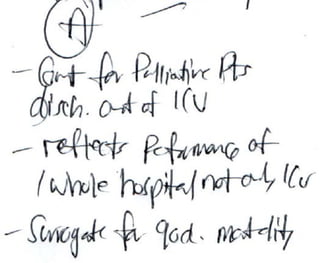 A
- Cant for Palliative Pts
disch. out of ICU
- reflects Peformance of
/ whole hospital not only ICU
- Surrogate for god. mortality